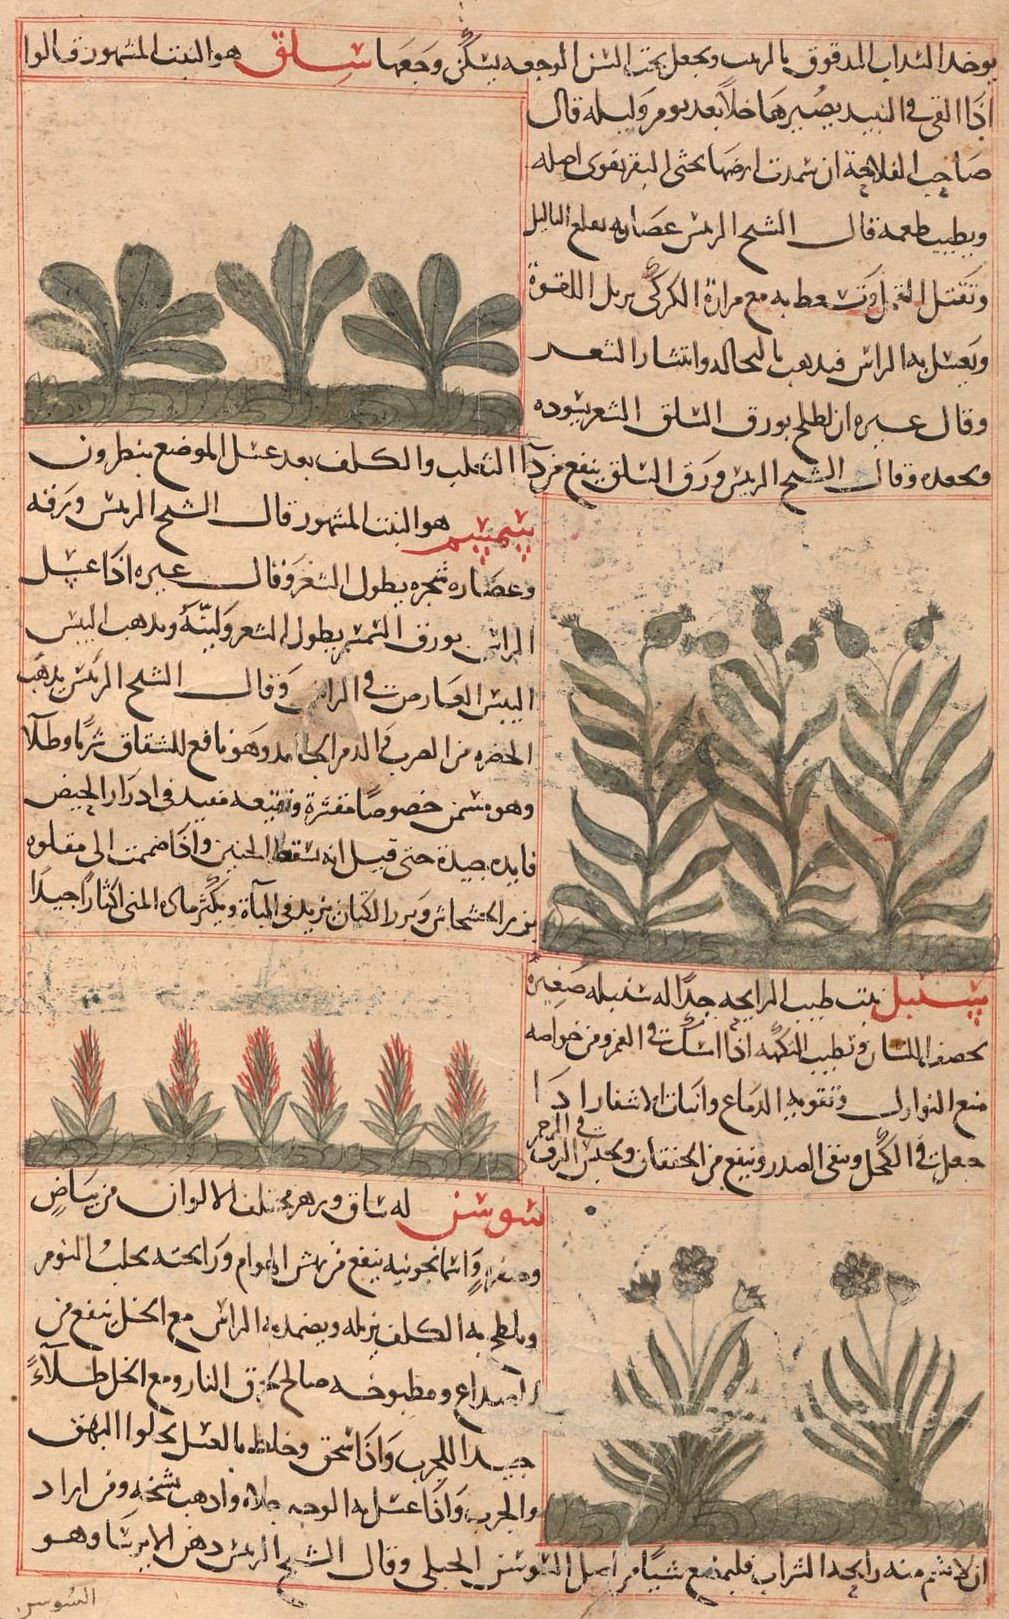 يوخذ السداب المدقوق بالزيت ويجعل تحت السن الوجعه يسكن وجعها سلق هو النبت المشهور قالوا
اذا القى فى النبيد يصيرها خلا بعد يوم وليلة قال
صاحب الفلاحة ان سمدت ارضها بخثى البقر تقوى اصله
ويطيب طعمه قال الشيخ الرييس عصارته تقلع الثاليل
وتقتل القمل وتسعط به مع مرارة الكركى يزيل اللقوة
ويغسل به الراس فيذهب بالنخالة وانتشار الشعر
وقال غيره ان لطلح بورق السلق الشعر يسوده
ويجعده وقال الشيخ الرييس ورق السلق ينفع من دآ الثعلب والكلف بعد غسل الموضع بنطرون
سمسم هو النبت المشهور قال الشيخ الرييس ورقه
وعصارة شجره يطول الشعر وقال غيره اذا غسل
الراس بورق السمسم يطول الشعر ولينه ويذهب اليبس
اليبس العارض فى الراس وقال الشيخ الرييس يذهب
الخضره من الضرب فى الدم الجامد وهو نافع للشقاق شربا وطلآ
وهو مسمن خصوصا مقشرة ونقيعه مفيد فى ادرار الحيض
فايده جيدة حتى قيل انه يسقط الجنين واذا ضممت الى مقلوه
بزر الخشخاش وبزر الكتان يزيد فى المآة ويكثر مادة المنى اكثارا جيدا
سنبل نبت طيب الرايحه جدا له سنبله صغيرة
يخصف اللسان وتطيب النكهه اذا امسكت فى الفم ومن خواصه
منع النوازل وتقويه الدماغ وانبات الاشفار اذا
جعل فى الكحل وينقى الصدر وينفع من الخفقان ويحبس النزف
فى الرحم
سوسن له ساق وزهر مختلف الالوان من بياض
وصفره واسمانجونيه ينفع من نهش الهوام ورايحته يجلب النوم
ويطلى به الكلف يزيله ويضمد به الراس مع الخل ينفع من
الصداع ومطبوخه صالح لحرق النار ومع الخل طلآء
جيدا للجرب واذا سحق وخلط بالعسل يجلوا البهق
والجرب واذا غسل به الوجه جلاه واذهب تشنجه ومن اراد
ان لا يشم منه رايحة الشراب فليمضع شيا من اصل السوسن الجبلى وقال الشيخ الرييس دهن الايرسا وهو
السوسن